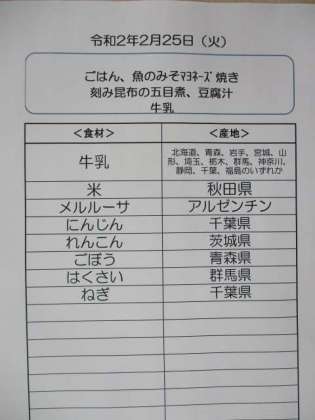 令和2年2月25日（火）
ごはん、魚のみそﾏﾖﾈｰｽﾞ焼き
刻み昆布の五目煮、豆腐汁
牛乳
＜食材＞ ＜産地＞
牛乳 北海道、青森、岩手、宮城、山
形、埼玉、栃木、群馬、神奈川、
静岡、千葉、福島のいずれか
米 秋田県
メルルーサ アルゼンチン
にんじん 千葉県
れんこん 茨城県
ごぼう 青森県
はくさい 群馬県
ねぎ 千葉県